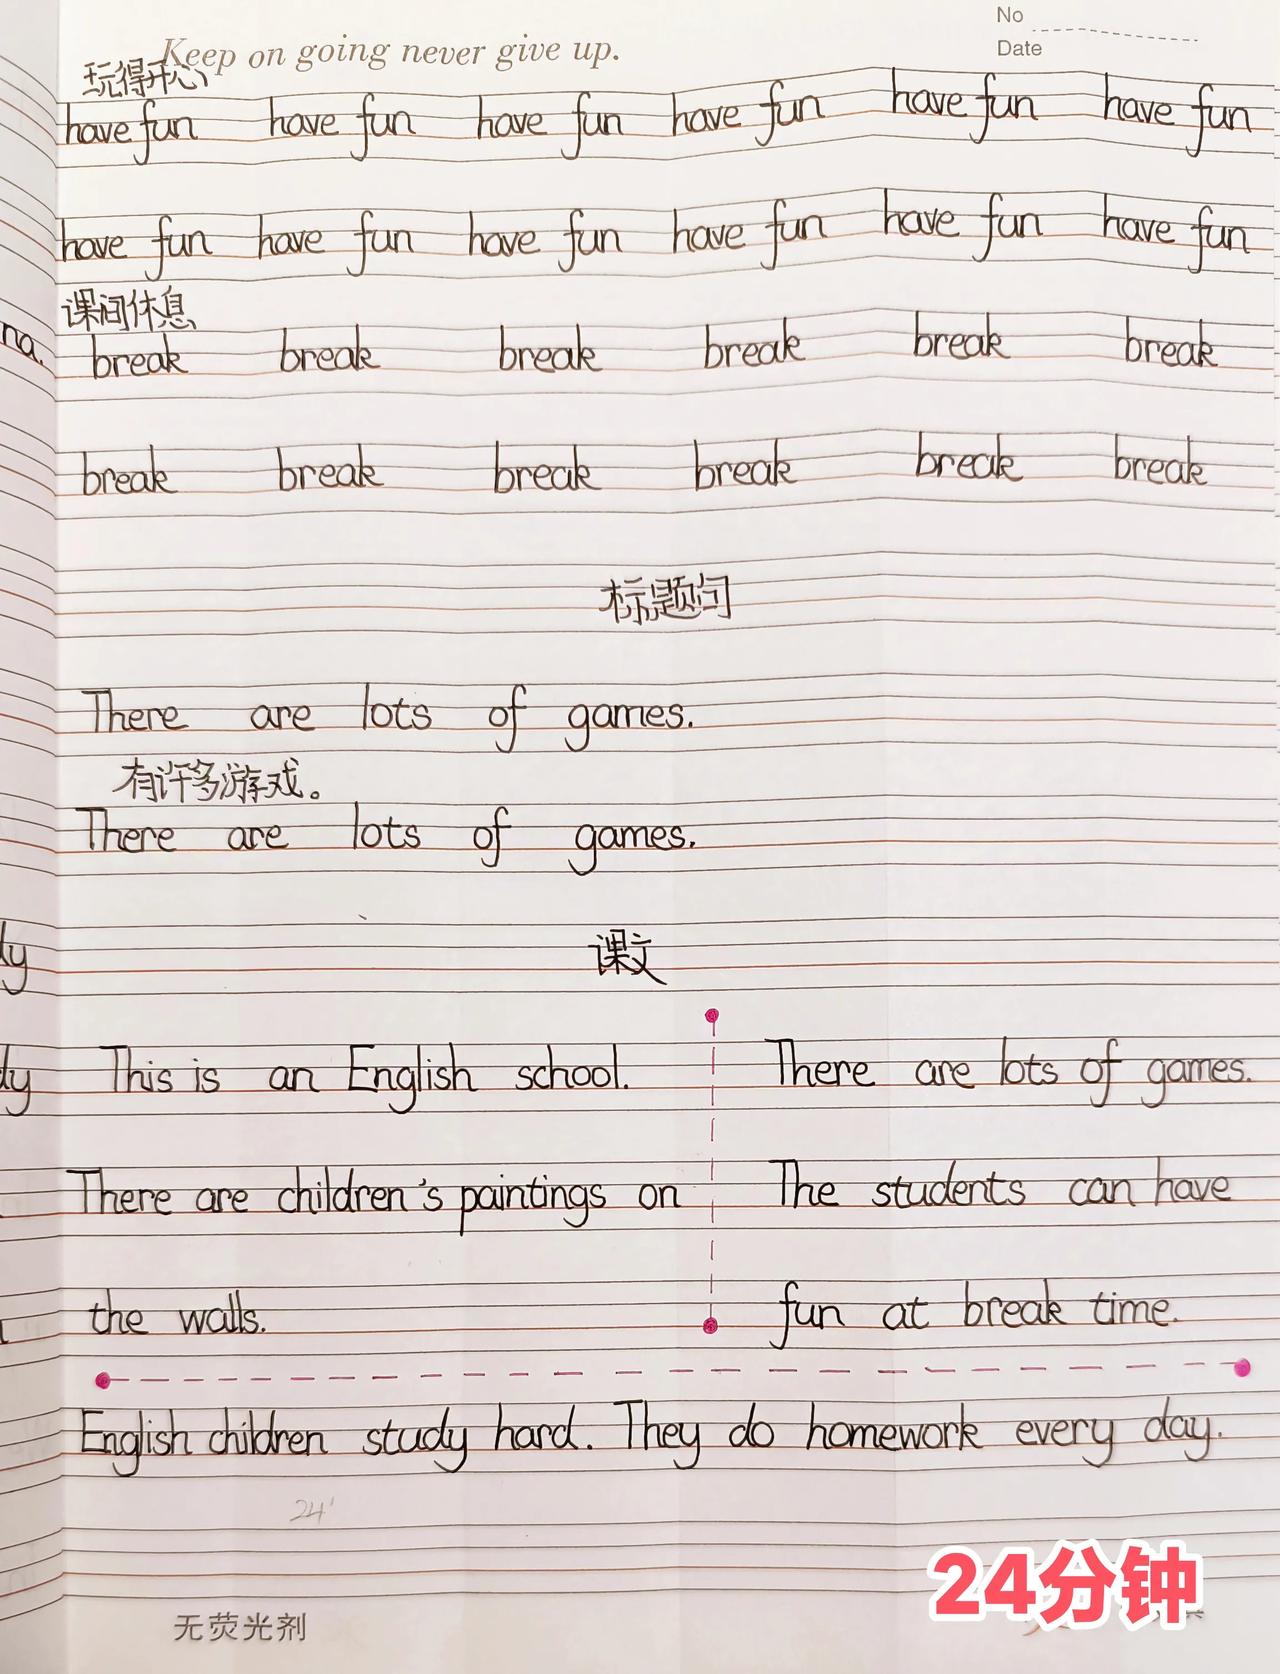 No
Keep on going never give up.
Date
玩得开心
have fun have fun have fun have fun have fun have fun
have fun have fun have fun have fun have fun have fun
课间休息
na.
break break break break break break
break break break break break break
标题问
There are lots of games.
有许多游戏。
There are lots of games.
课文
ly
ly
This is an English school.
There are children's paintings on
the walls.
There are lots of games.
The students can have
fun at break time.
English children study hard. They do homework every day.
24'
24分钟
无荧光剂